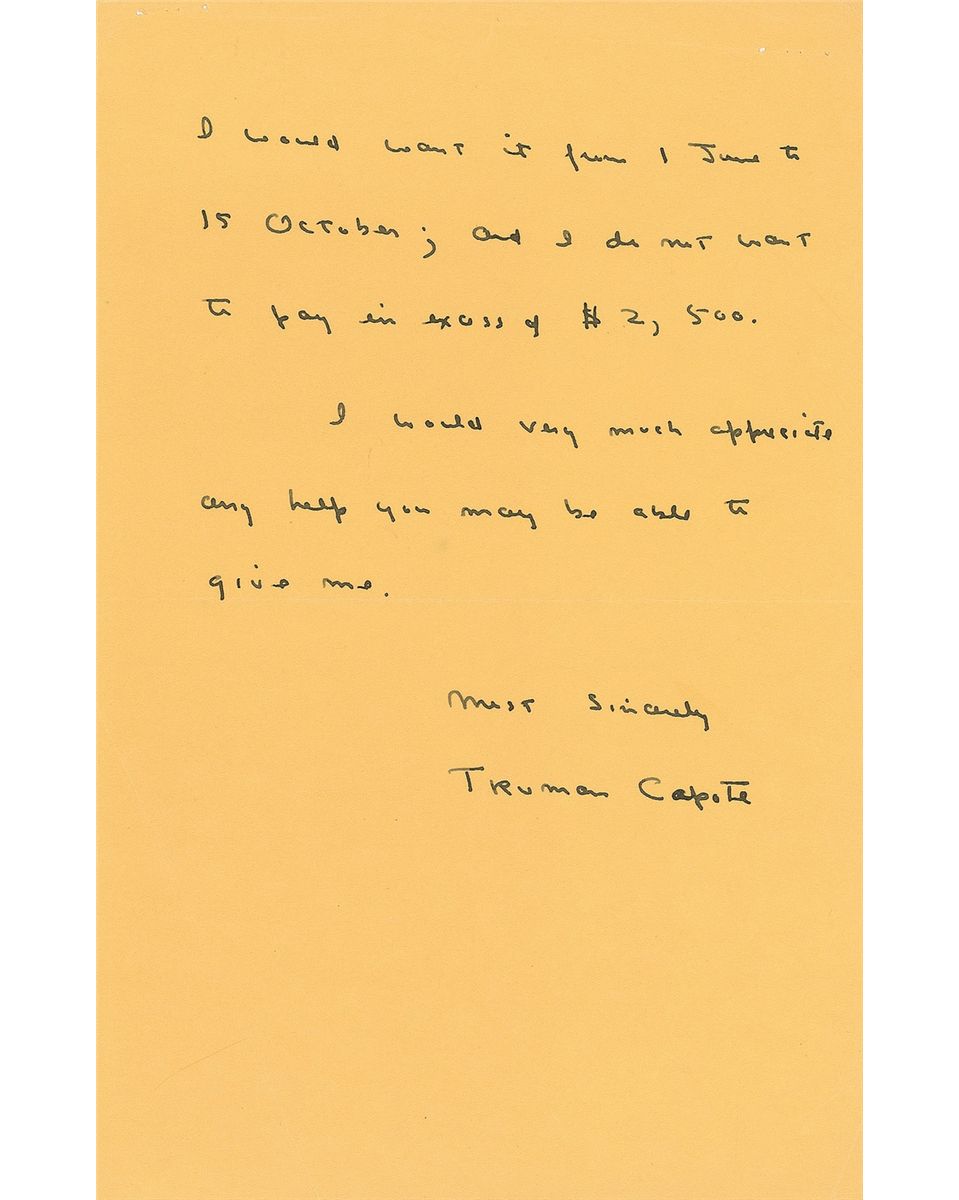 I would want it from 1 June to
15 October; and I do not want
to pay in excess of $2,500.
I would very much appreciate
any help you may be able to
give me.
Most Sincerely
Truman Capote